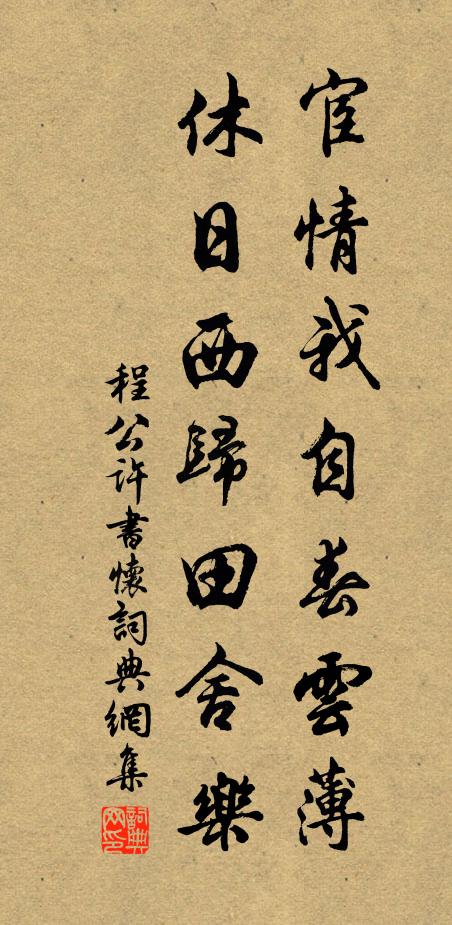 宦情我自春雲薄
休日西歸田舍樂
程公許書懷詞典網集
詞典
网印